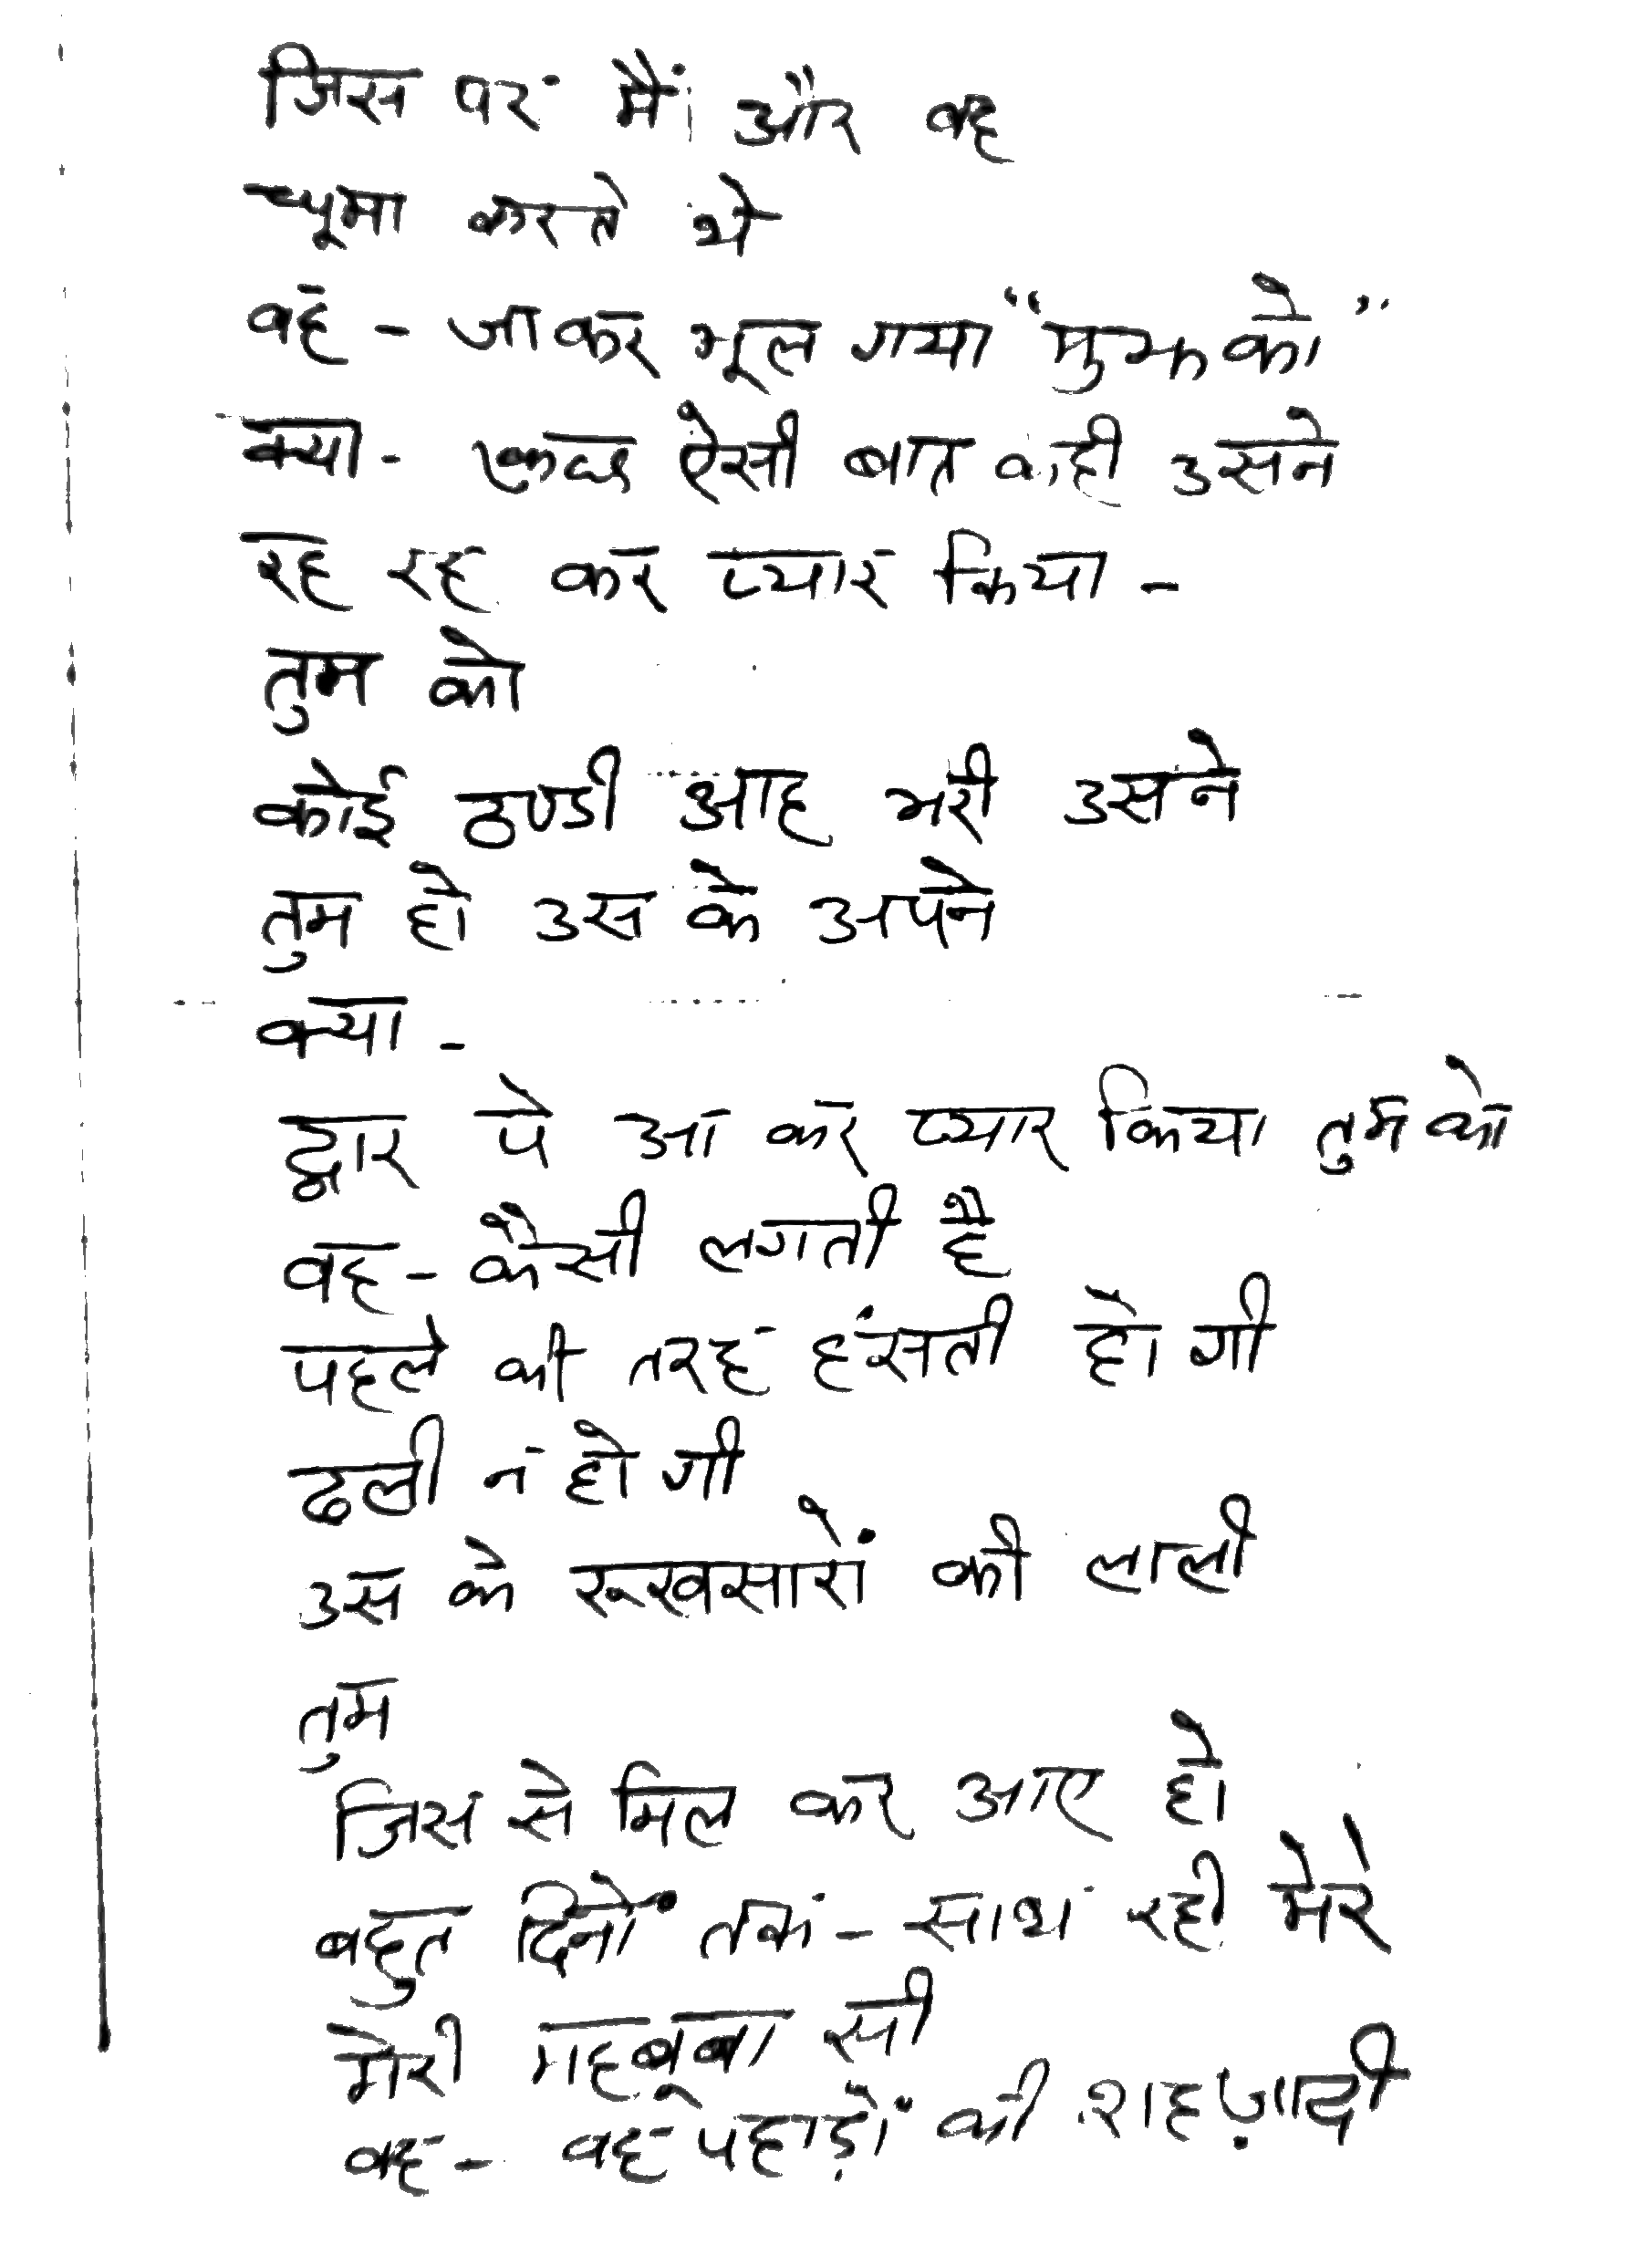 जिस पर मैं और वह
चूमा करते थे
वह - जाकर भूल गया "मुझको"
क्या - कुछ ऐसी बात कही उसने
रह रह कर प्यार किया -
तुम को
कोई ठण्डी आह भरी उसने
तुम हो उस के अपने
क्या -
द्वार पे आ कर प्यार किया तुम को
वह - कैसी लगती है
पहले की तरह हंसती हो गी
ढली न हो गी
उस के रूखसारों की लाली
तुम
जिस से मिल कर आए हो
बहुत दिनों तक - साथ रही मेरे
मेरी महबूबा सी
वह - वह पहाड़ों की शहज़ादी